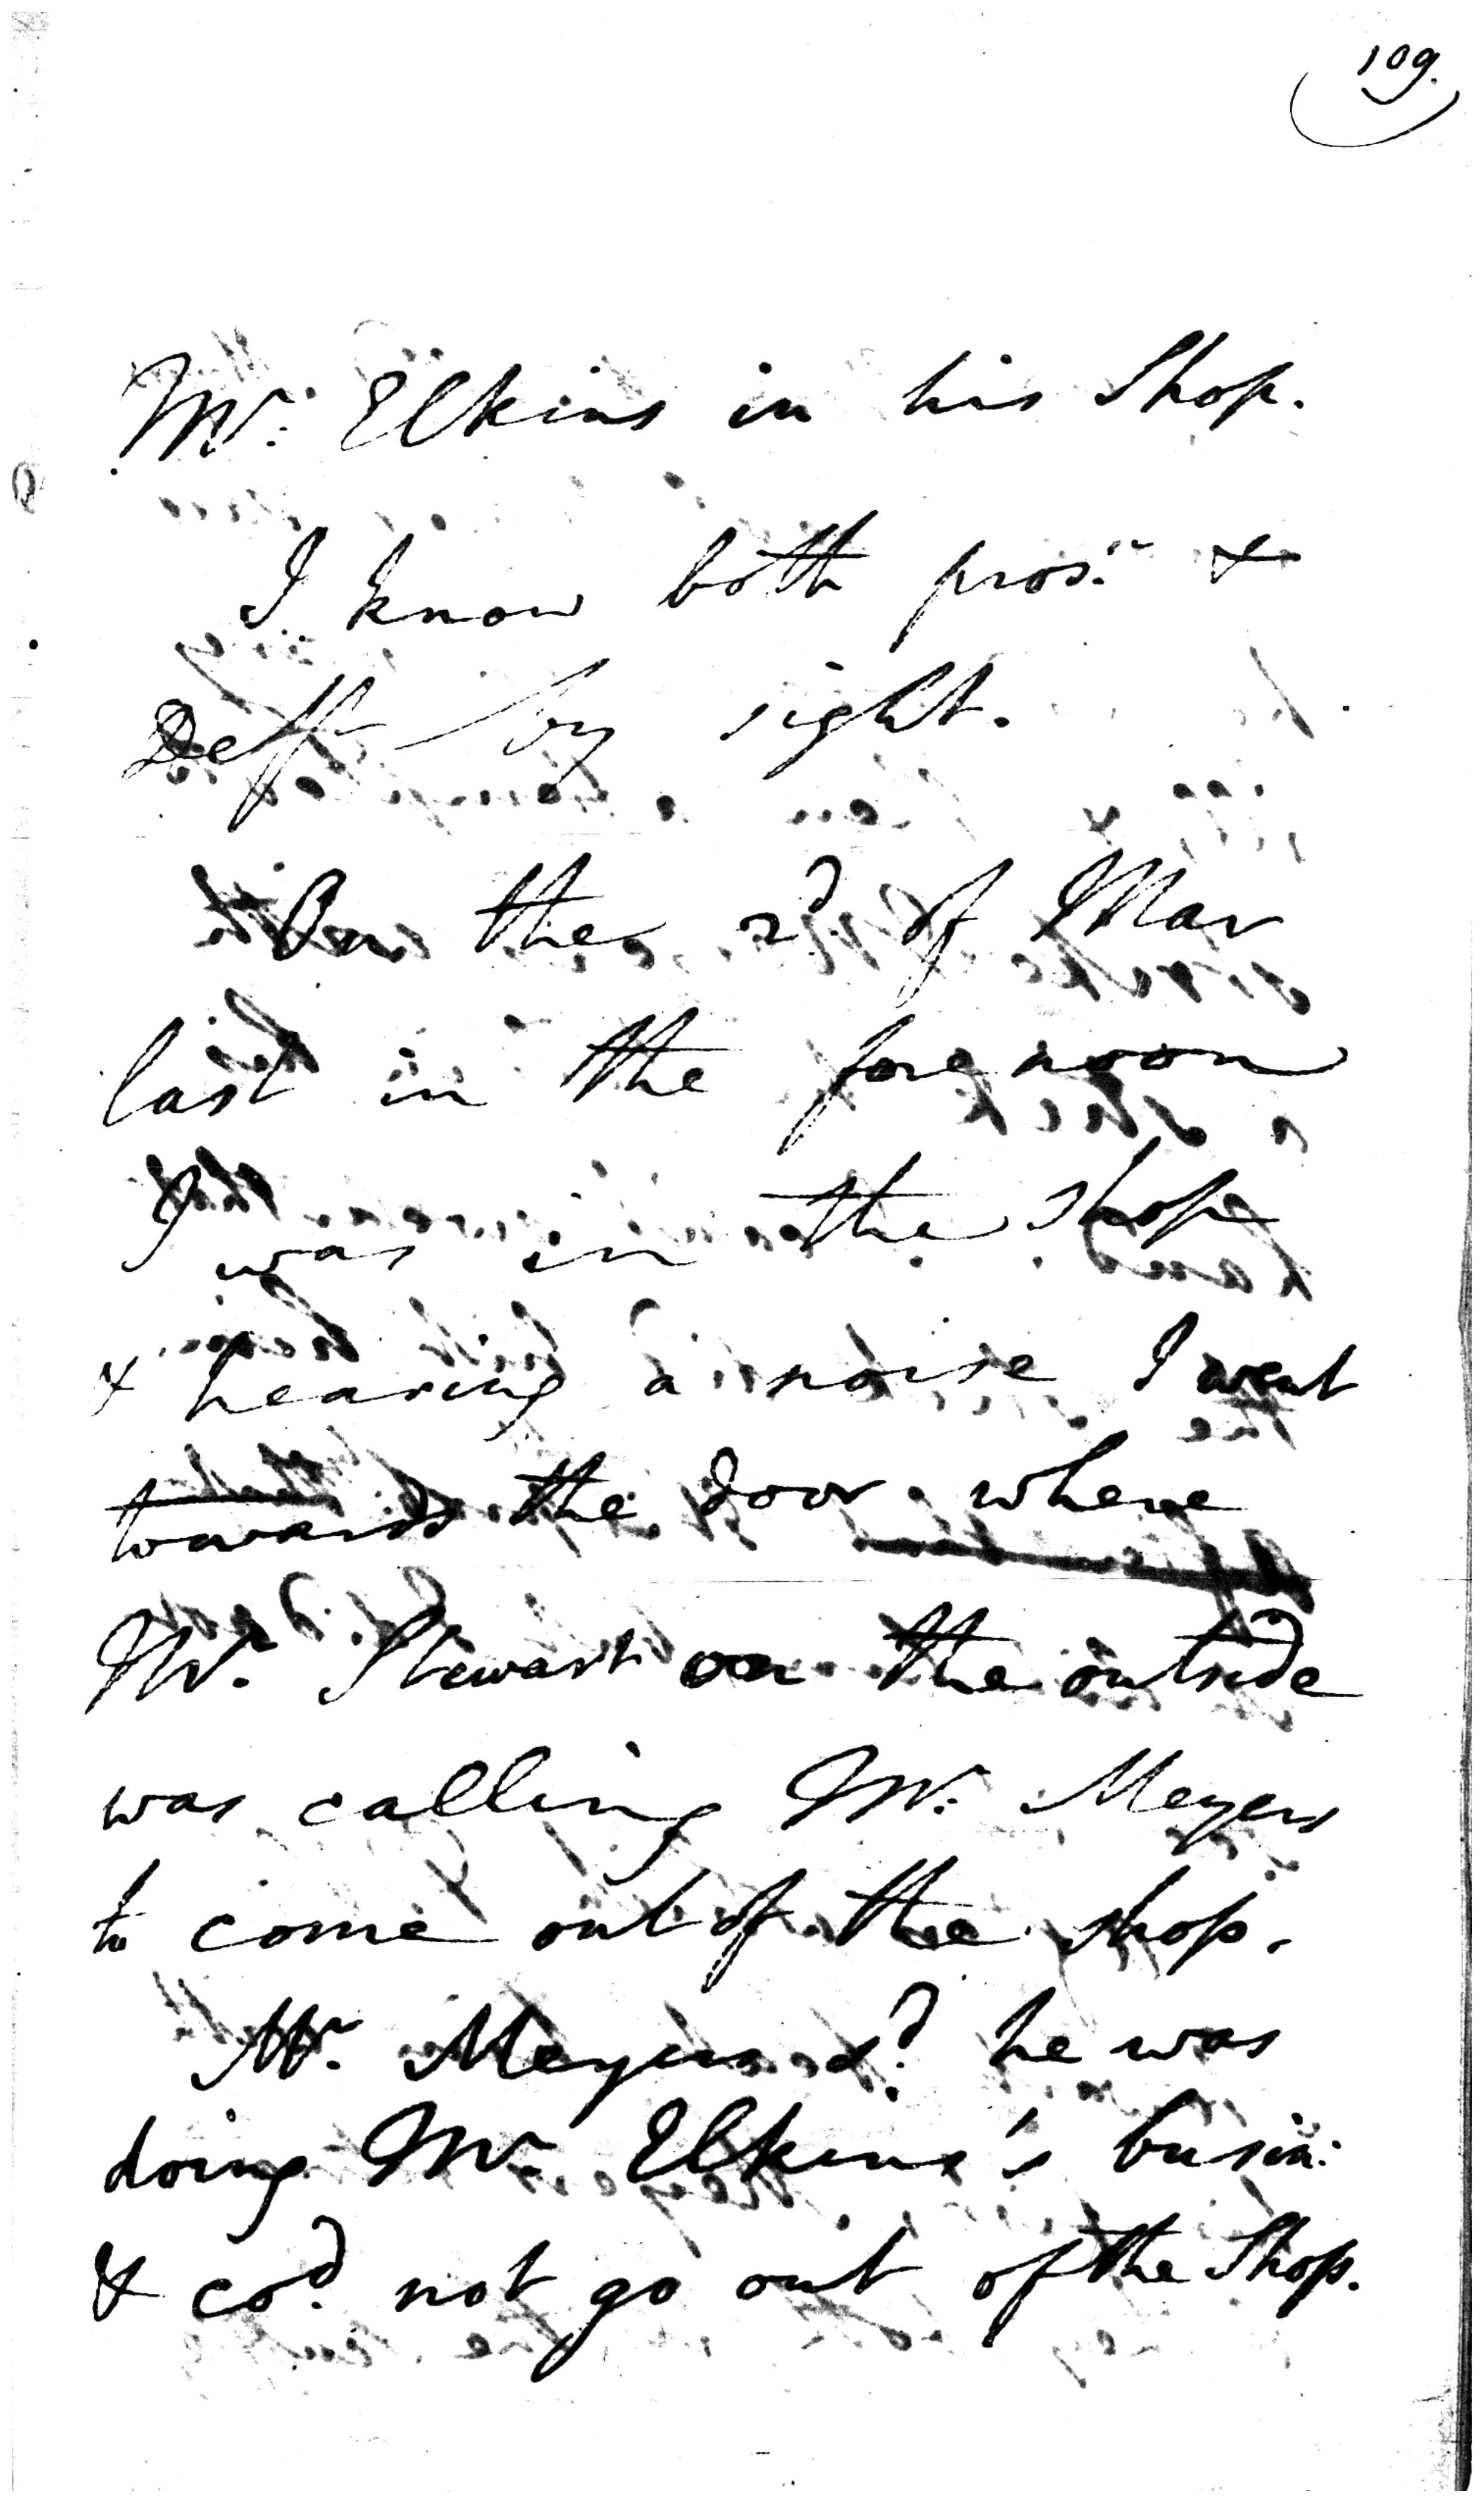 109.
Mr. Elkins in his Shop.
I know both prosr. &
Deft by sight.
On the 2d of Mar
last in the forenoon
I was in the shop
& hearing a noise I went
towards the door where
Mr. Stewart on the outside
was calling Mr. Meyers
to come out of the shop.
Mr. Meyers sd. he was
doing Mr. Elkins's busin:
& cod. not go out of the Shop.